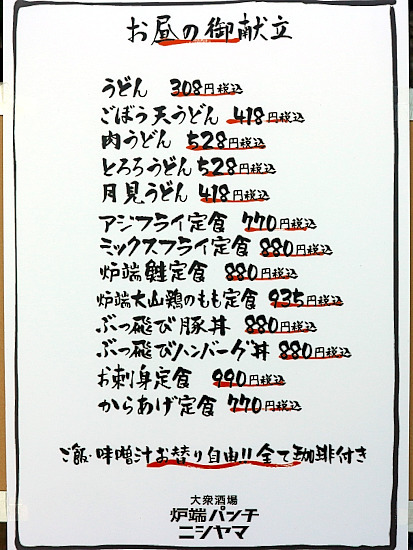 お昼の御献立
うどん 308円税込
ごぼう天うどん 418円税込
肉うどん 528円税込
とろろうどん 528円税込
月見うどん 418円税込
アジフライ定食 770円税込
ミックスフライ定食 880円税込
炉端鮭定食 880円税込
炉端大山鶏のもも定食 935円税込
ぶっ飛び豚丼 880円税込
ぶっ飛びハンバーグ丼 880円税込
お刺身定食 990円税込
からあげ定食 770円税込
ご飯・味噌汁お替り自由!!全て珈琲付き
大衆酒場
炉端パンチ
ニシヤマ